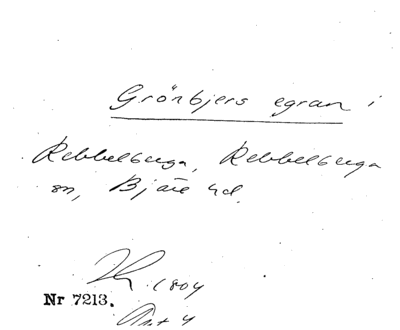 Grönbjers egran i
Rebbelberga, Rebbelberga
sn, Bjäre hd.
1804
Nr 7213.